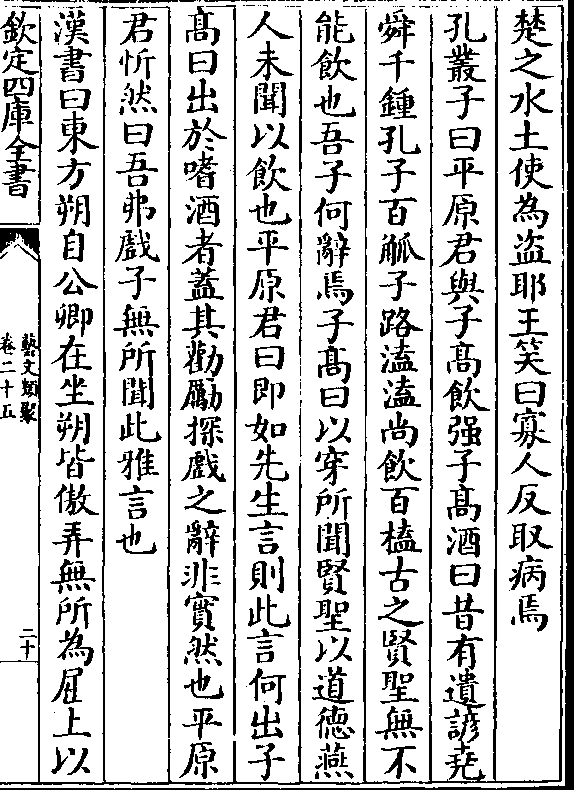 楚之水土使為盗耶王笑曰寡人反取病焉
孔叢子曰平原君與子髙飲强子髙酒曰昔有遺諺堯
舜千鍾孔子百觚子路溘溘尚飲百榼古之賢聖無不
能飲也吾子何辭焉子髙曰以穿所聞賢聖以道德燕
人未聞以飲也平原君曰即如先生言則此言何出子
髙曰出於嗜酒者蓋其勸勵探戲之辭非實然也平原
君忻然曰吾弗戲子無所聞此雅言也
漢書曰東方朔自公卿在坐朔皆傲弄無所為屈上以
欽定四庫全書
藝文類聚
卷二十五
二十